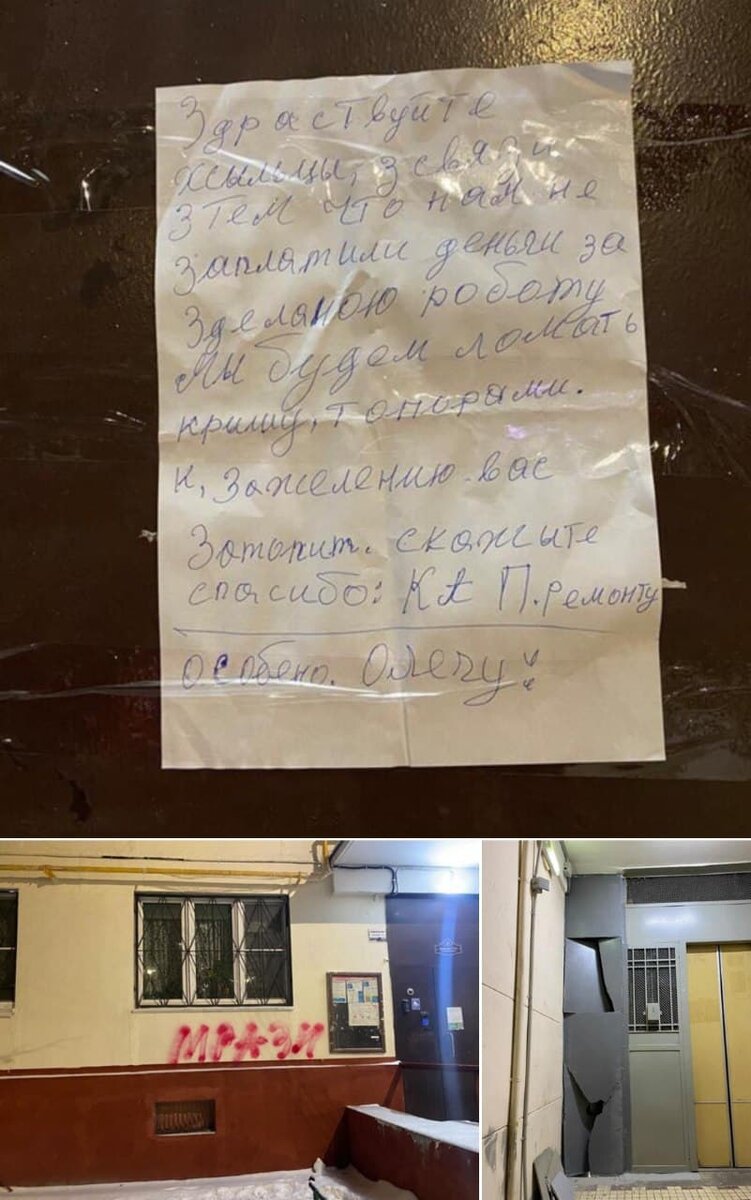 Здраствуйте
жыльцы, з связи
з тем что нам не
заплатили деньги за
зделаною роботу
мы будем ломать
крышу, топорами.
к, зажелению вас
Затопит. скажыте
спасибо: КА П. ремонту
особено. Олегу
МРАЗИ